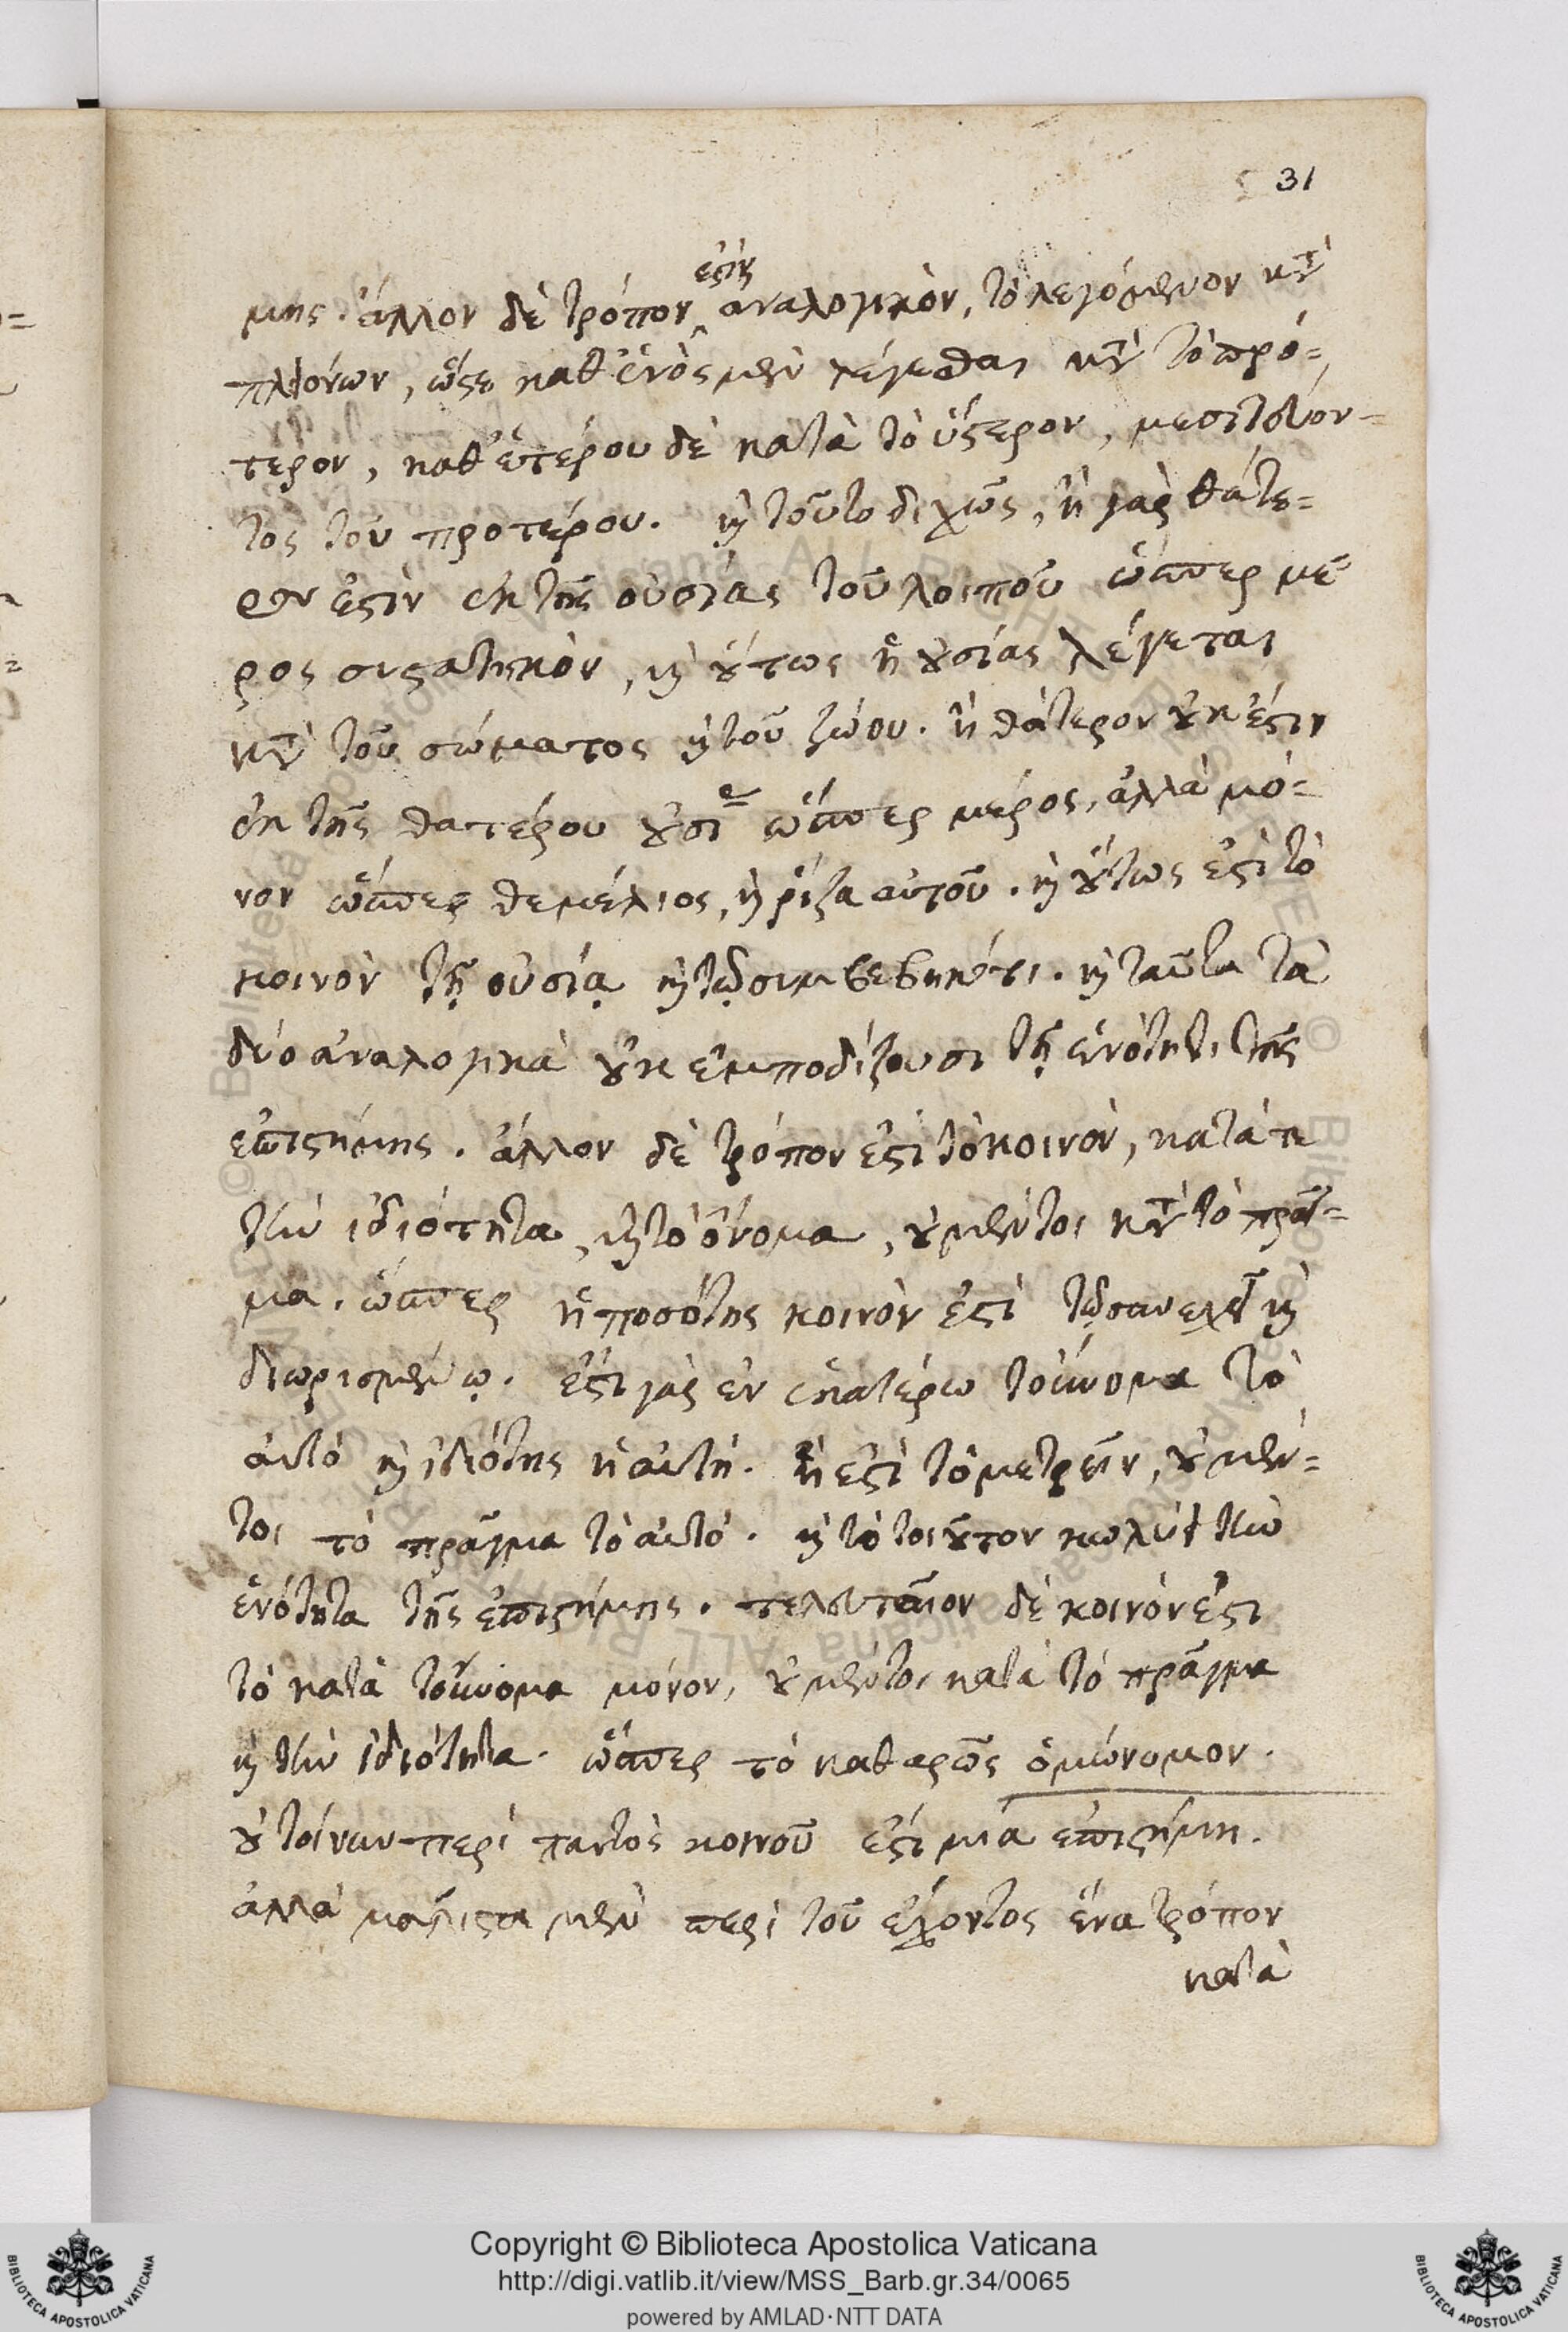 31
μης. ἄλλον δὲ τρόπον ἐστὶν ἀναλογικὸν, τὸ λεγόμενον κατὰ
πλειόνων, ὥστε καθ' ἑνὸς μὲν λέγεσθαι κατὰ τὸ πρό=
τερον, καθ' ἑτέρου δὲ κατὰ τὸ ὕστερον, μεσιτεύον=
τος τοῦ προτέρου. καὶ τοῦτο διχῶς, ἢ γὰρ θάτε=
ρον ἐστὶν ἐκ τῆς οὐσίας τοῦ λοιποῦ ὥσπερ μέ
ρος συστατικὸν, καὶ οὕτως ἡ οὐσίας λέγεται
κατὰ τοῦ σώματος καὶ τοῦ ζώου. ἢ θάτερον οὐκ ἔστιν
ἐκ τῆς θατέρου οὐσίας ὥσπερ μέρος, ἀλλὰ μό=
νον ὥσπερ θεμέλιος, καὶ ῥίζα αὐτοῦ. καὶ οὕτως ἐστὶ τὸ
κοινὸν τῇ οὐσίᾳ καὶ τῷ συμβεβηκότι. καὶ ταῦτα τὰ
δύο ἀναλογικὰ οὐκ ἐμποδίζουσι τῇ ἑνότητι τῆς
ἐπιστήμης. ἄλλον δὲ τρόπον ἐστὶ τὸ κοινὸν, κατά τε
τὴν ἰδιότητα, καὶ τὸ ὄνομα, οὐ μέντοι κατὰ τὸ πρᾶγ=
μα. ὥσπερ ἡ ποσότης κοινὸν ἐστὶ τῷ συνεχεῖ καὶ
διωρισμένῳ. ἔστι γὰρ ἐν ἑκατέρω τοὔνομα τὸ
αὐτὸ καὶ ἰδιότης ἡ αὐτή. ἥ ἐστὶ τὸ μετρεῖν, οὐ μέν=
τοι τὸ πρᾶγμα τὸ αὐτό. καὶ τὸ τοιοῦτον κωλύει τὴν
ἑνότητα τῆς ἐπιστήμης. τελευταῖον δὲ κοινόν ἐστι
τὸ κατὰ τοὔνομα μόνον, οὐ μέντοι κατὰ τὸ πρᾶγμα
καὶ τὴν ἰδιότητα. ὥσπερ τὸ καθαρῶς ὁμώνυμον.
οὐ τοίνυν περὶ παντὸς κοινοῦ ἐστὶ μία ἐπιστήμη.
ἀλλὰ μάλιστα μὲν περὶ τοῦ ἔχοντος ἕνα τρόπον
κατὰ
Copyright © Biblioteca Apostolica Vaticana
http://digi.vatlib.it/view/MSS_Barb.gr.34/0065
powered by AMLAD·NTT DATA